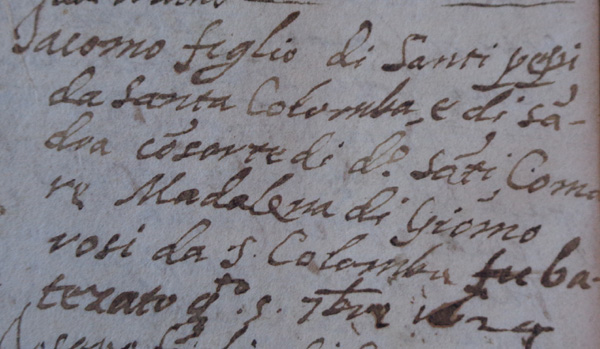 Iacomo figlio di Santi pepi
da Santa Colomba, e di sã-
dra cõsorte di d.º Sãti, Coma
re Madalena di Giõmo
rosi da S. Colomba fu ba-
tezato q.to s. 7bre